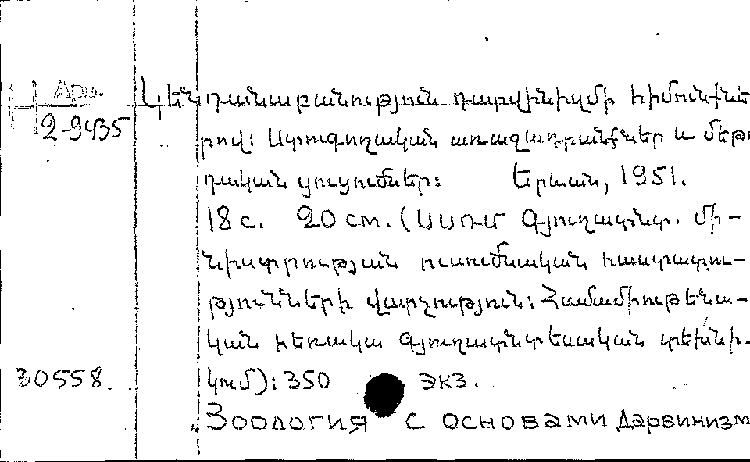 Арм.
2-9435
Կենդանաբանություն դարվինիզմի հիմունքնե
րով: Ստուգողական առաջադրանքներ և մեթո
դական ցուցումներ: Երևան, 1951.
18 с. 20 см. (ՍՍՌՄ Գյուղատնտ. մի-
նիստրության ուսումնական հաստատու-
թյունների վարչություն: Համամիութենա-
կան հեռակա գյուղատնտեսական տեխնի-
կում): 350 экз.
30558.
Зоология с основами дарвинизм